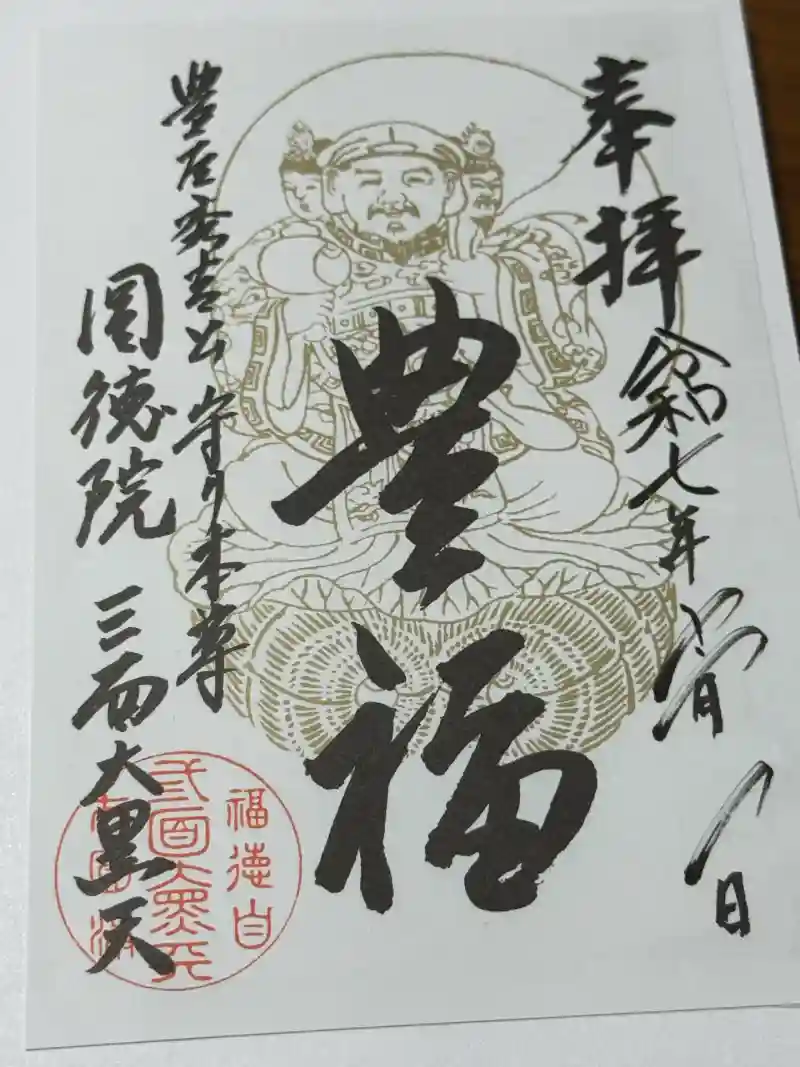 奉拝
令和七年
月
日
豊福
豊臣秀吉公 守り本尊
圓徳院 三面大黒天
福徳自
三面大黒天